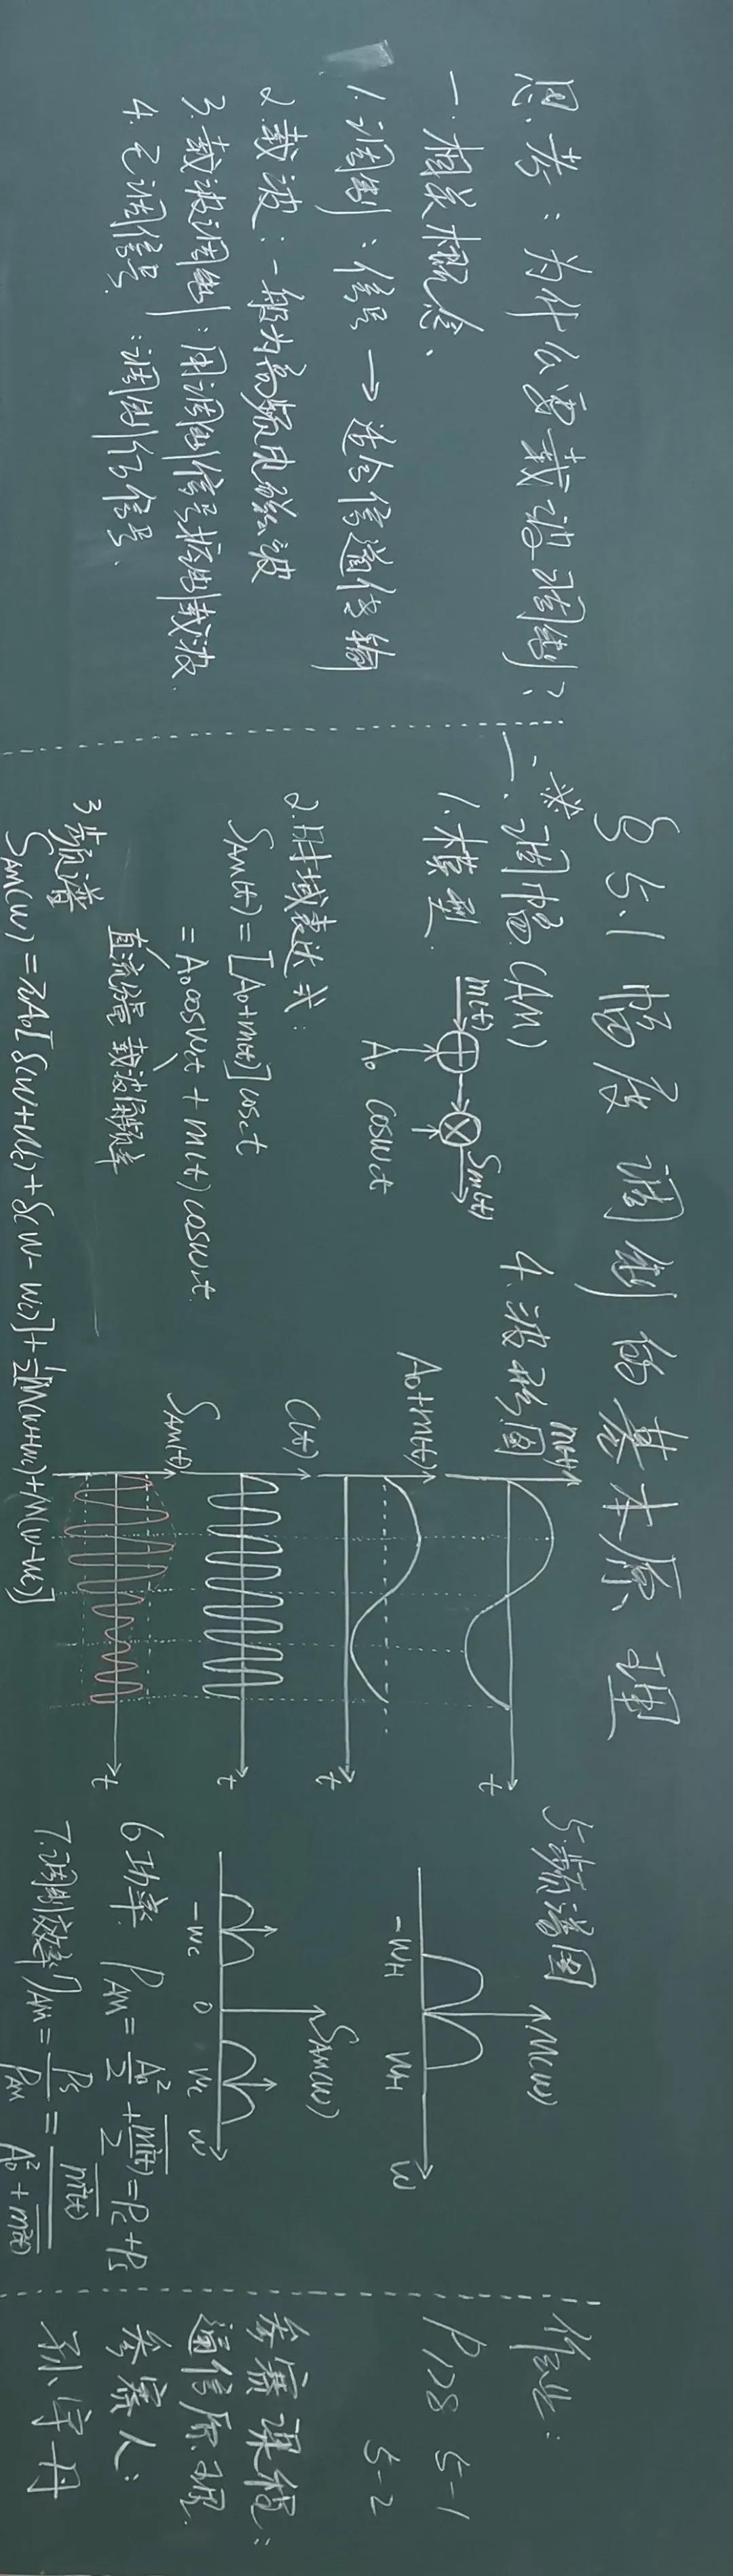 §5.1 幅度调制的基本原理
思考：为什么要载波调制？
一. 相关概念.
1. 调制：信号 → 适合信道传输
2. 载波：一般为高频电磁波
3. 载波调制：用调制信号控制载波.
4. 已调信号：调制后信号.
二. 调幅 (AM) ※
1. 模型.
m(t)
A₀
cosωct
Sm(t)
2. 时域表达式：
SAM(t) = [A₀+m(t)]cosωct
= A₀cosωct + m(t)cosωct.
直流信号 载波角频率
3. 频谱
SAM(ω) = πA₀[δ(ω+ωc) + δ(ω-ωc)] + ½[M(ω+ωc) + M(ω-ωc)]
4. 波形图
m(t)
t
A₀+m(t)
t
C(t)
t
SAM(t)
t
5. 频谱图
M(ω)
-ωH ωH ω
SAM(ω)
-ωc 0 ωc ω
6. 功率. PAM = A₀²/2 + m²(t)/2 = Pc + Ps
7. 调制效率 ηAM = Ps/PAM = m²(t)/(A₀² + m²(t))
作业：
P128 5-1
5-2
参赛课程：
通信原理.
参赛人：
孙宇丹